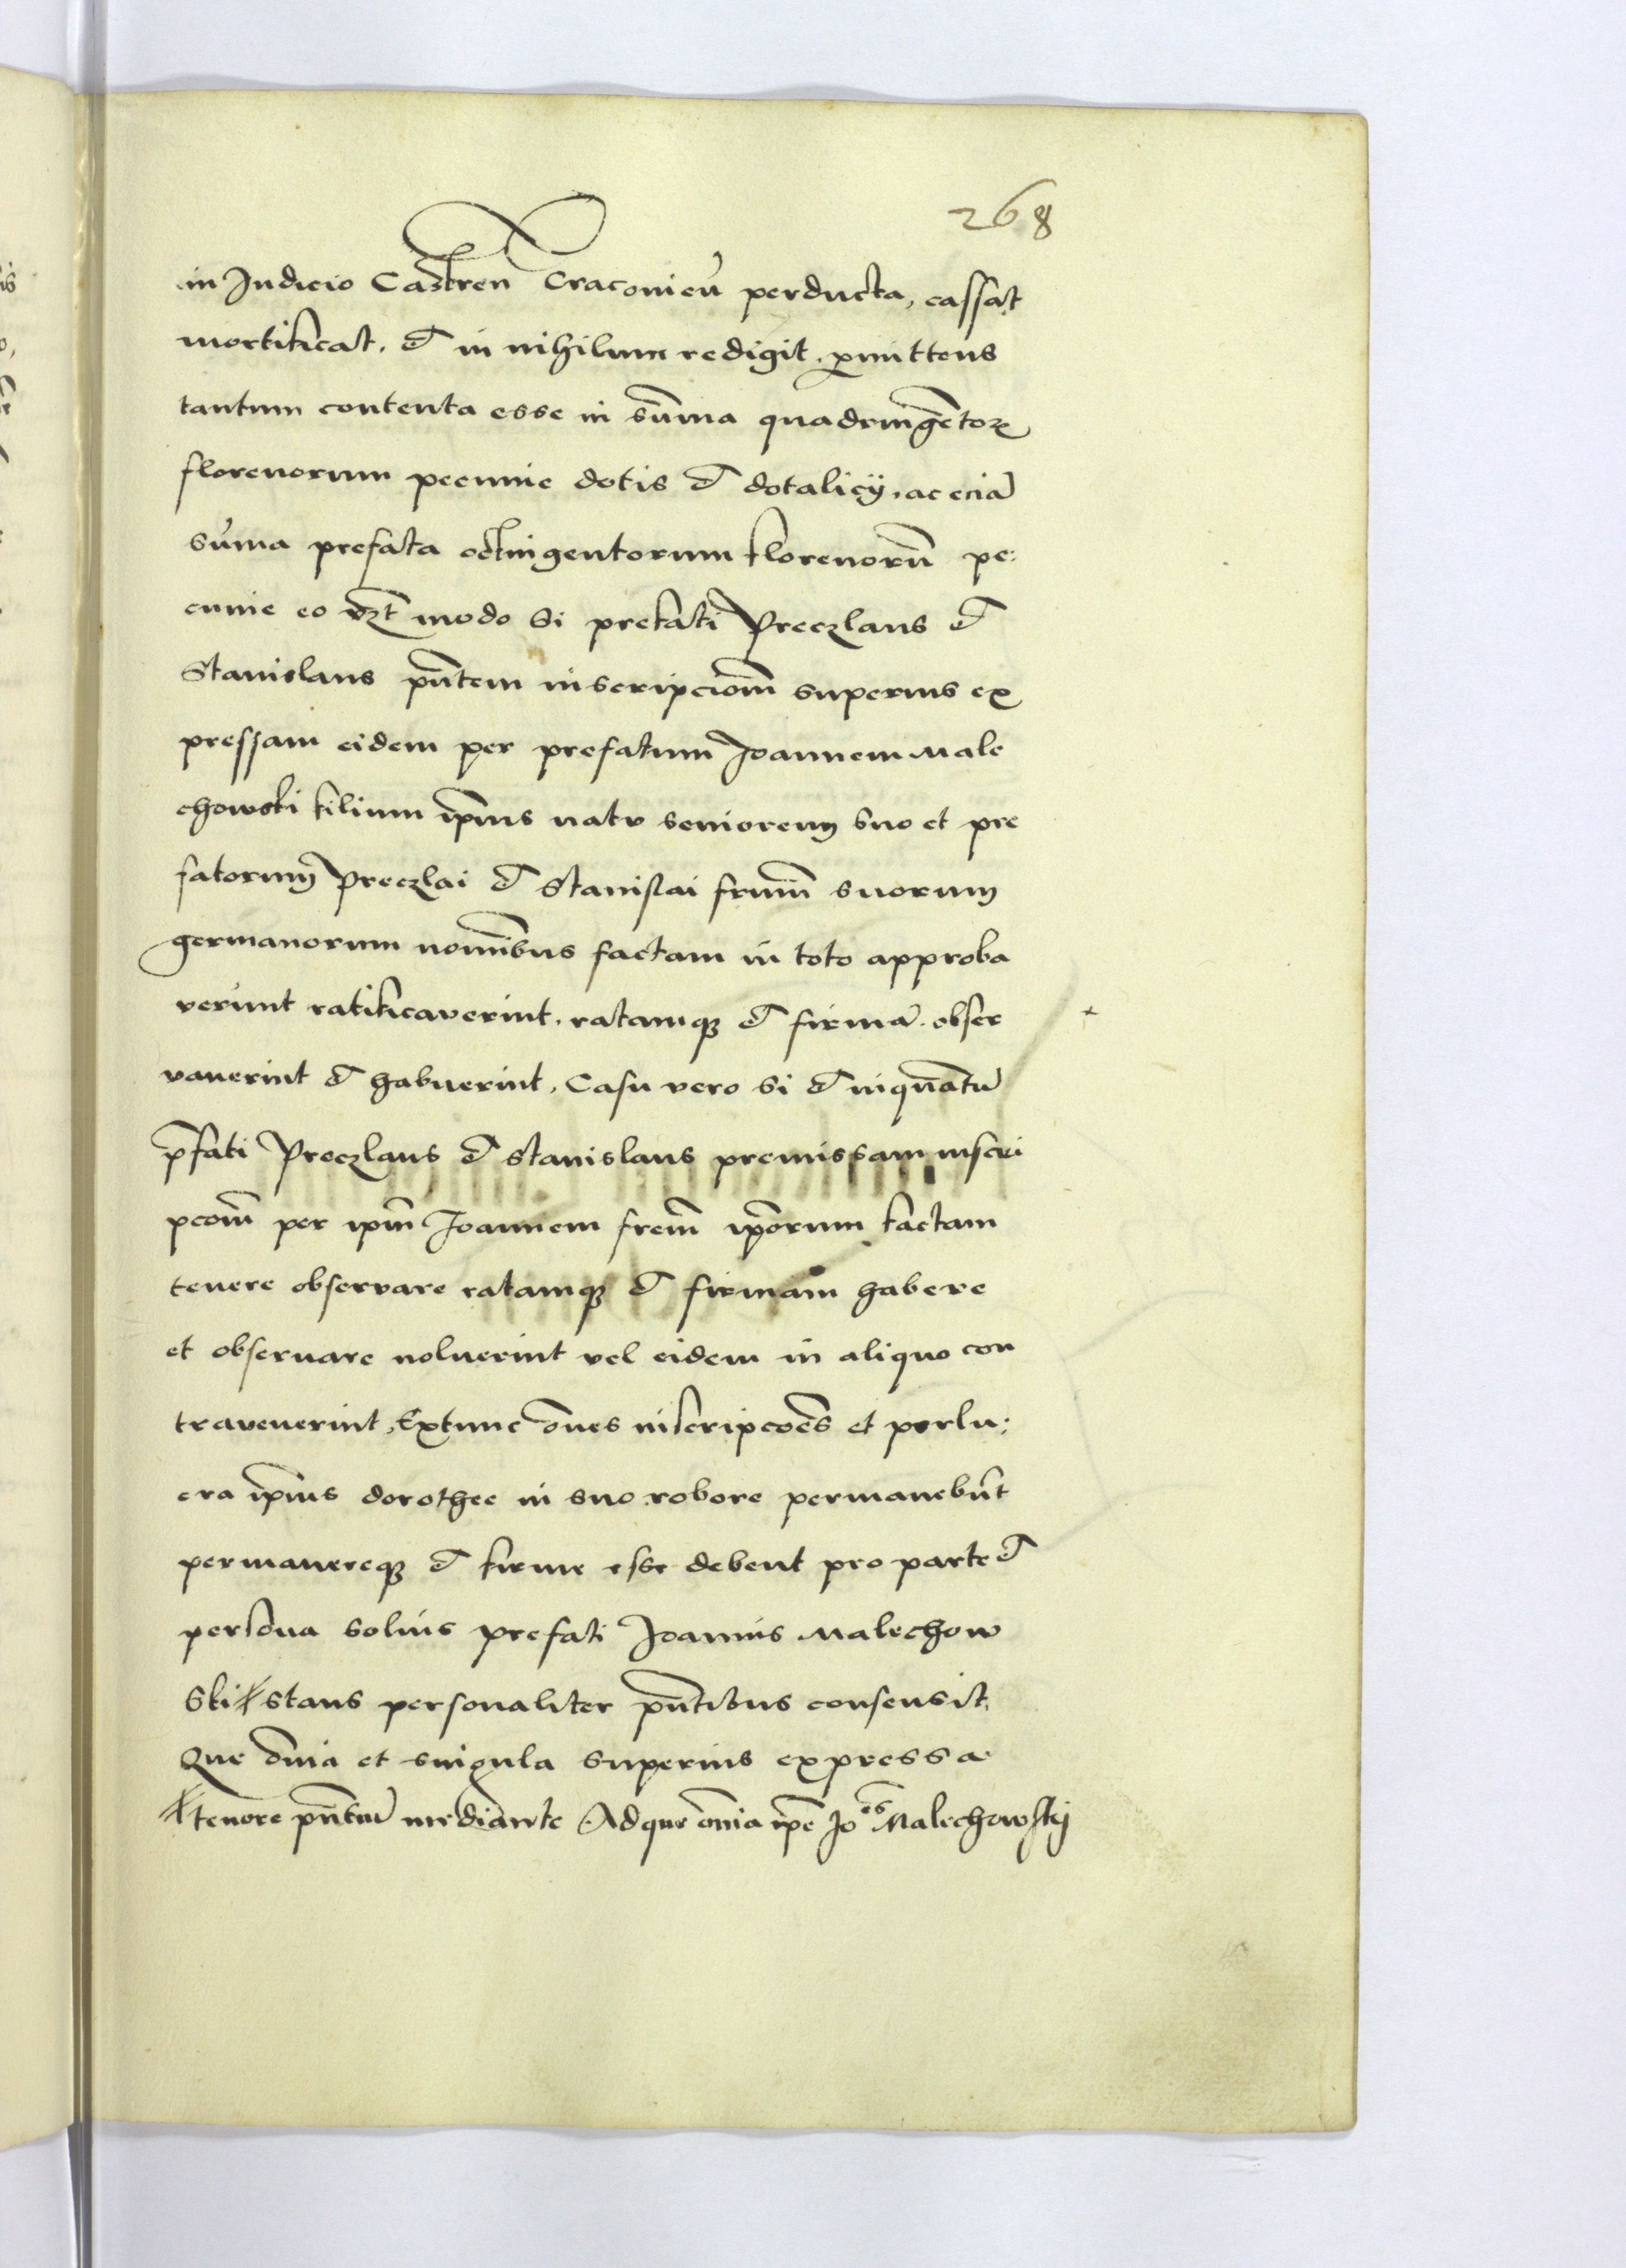 268
in Judicio Castren Cracovien perducta, cassat
mortificat, et in nihilum redigit, pmittens
tantum contenta esse in suma quadringetor
florenorum pecunie dotis et dotalicij, ac ecia
suma prefata octingentorum florenoru pe:
cunie eo vzt modo Si prefati Preczlaus et
Stanislaus pntem inscripciom superius ex
pressam eidem per prefatum Joannem Male
chowski filium ipius natu seniorem suo et pre
fatorum Preczlai et Stanislai frum suorum
germanorum nomibus factam in toto approba
verunt ratificaverint, ratamq et firma obser
vaverint et habuerint, Casu vero Si et inquatu
pfati Preczlaus et Stanislaus premissam inscri
pcom per ipm Joannem frem iporum factam
tenere observare ratamq et firmam habere
et observare noluerint vel eidem in aliquo con
travenerint, Extunc oes inscripcoes et perlu:
cra ipius dorothee in suo robore permanebut
permanereq et firme esse debent pro parte et
persona solius prefati Joannis Malechow
Ski stans personaliter pntibus consensit
Que oia et singula superius expressa
tenore pntiu mediante Ad que omia ipe Joes Malechowskij